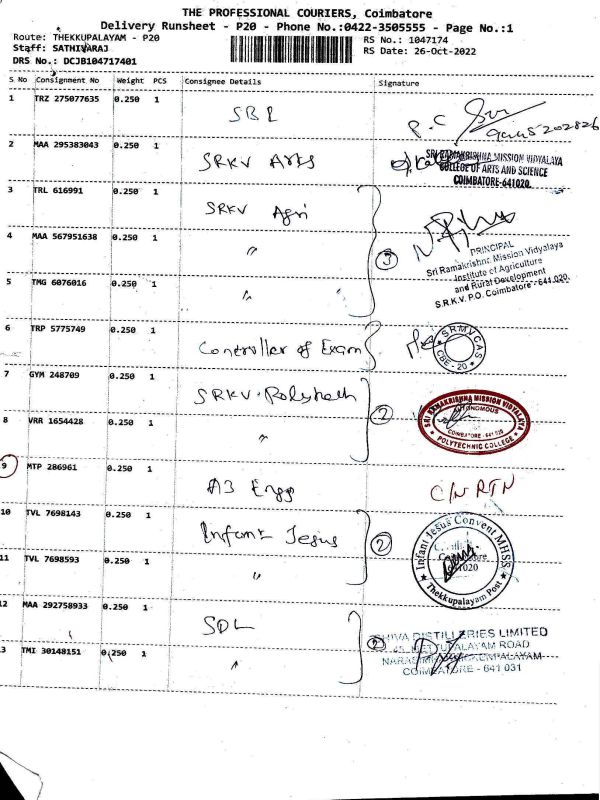 THE PROFESSIONAL COURIERS, Coimbatore
Delivery Runsheet - P20 - Phone No.:0422-3505555 - Page No.:1
Route: THEKKUPALAYAM - P20
RS No.: 1047174
Staff: SATHIYARAJ
RS Date: 26-Oct-2022
DRS No.: DCJB104717401
S No Consignment No Weight PCS Consignee Details Signature
1 TRZ 275077635 0.250 1
2 MAA 295383043 0.250 1 SRKV Arts
SRI RAMAKRISHNA MISSION VIDYALAYA
COLLEGE OF ARTS AND SCIENCE
COIMBATORE-641020.
3 TRL 616991 0.250 1 SRKV Agri
4 MAA 567951638 0.250 1 " 3
PRINCIPAL
Sri Ramakrishna Mission Vidyalaya
Institute of Agriculture
and Rural Development
S.R.K.V. P.O. Coimbatore - 641 020.
5 TMG 6076016 0.250 1 "
6 TRP 5775749 0.250 1 Controller of Exam
SRMVCAS
CBE - 20
7 GYM 248709 0.250 1 SRKV. 2
SRI RAMAKRISHNA MISSION VIDYALAYA
AUTONOMOUS
COIMBATORE - 641 020
POLYTECHNIC COLLEGE
8 VRR 1654428 0.250 1 "
9 MTP 286961 0.250 1 A3 Engg C/N RTN
10 TVL 7698143 0.250 1 Infant Jesus 2
Infant Jesus Convent MHSS
Thekkupalayam Post
11 TVL 7698593 0.250 1 "
12 MAA 292758933 0.250 1 SDL 2
SHIVA DISTILLERIES LIMITED
METTUPALAYAM ROAD
COIMBATORE - 641 031
13 TMI 30148151 0.250 1 "